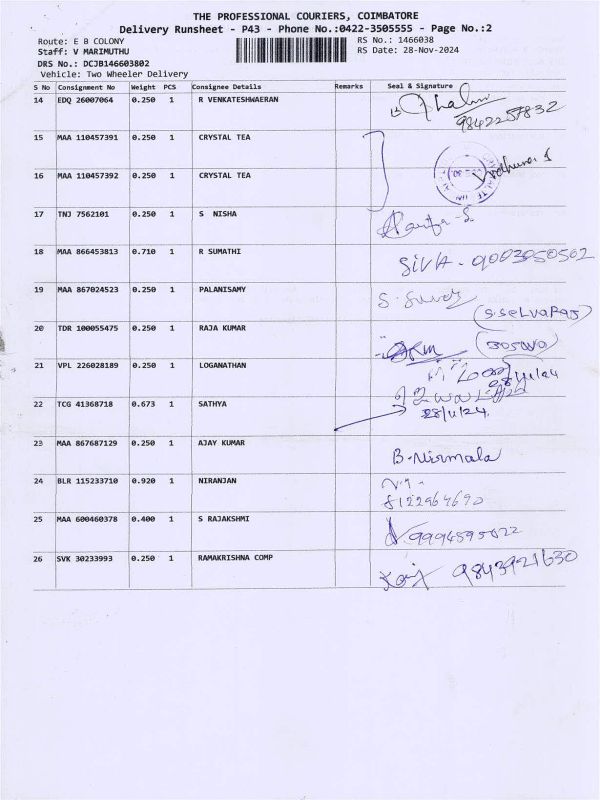 THE PROFESSIONAL COURIERS, COIMBATORE
Delivery Runsheet - P43 - Phone No.:0422-3505555 - Page No.:2
Route: E B COLONY RS No.: 1466038
Staff: V MARIMUTHU RS Date: 28-Nov-2024
DRS No.: DCJB146603802
Vehicle: Two Wheeler Delivery
S No Consignment No Weight PCS Consignee Details Remarks Seal & Signature
14 EDQ 26007064 0.250 1 R VENKATESHWAERAN
9842257832
15 MAA 110457391 0.250 1 CRYSTAL TEA
16 MAA 110457392 0.250 1 CRYSTAL TEA
17 TNJ 7562101 0.250 1 S NISHA
18 MAA 866453813 0.710 1 R SUMATHI
SIVA - 9003050502
19 MAA 867024523 0.250 1 PALANISAMY
(S.SELVARAJ)
20 TDR 100055475 0.250 1 RAJA KUMAR
21 VPL 226028189 0.250 1 LOGANATHAN
28/11/24
22 TCG 41368718 0.673 1 SATHYA
28/11/24
23 MAA 867687129 0.250 1 AJAY KUMAR
B. Nirmala
24 BLR 115233710 0.920 1 NIRANJAN
8122964690
25 MAA 600460378 0.400 1 S RAJAKSHMI
9994595022
26 SVK 30233993 0.250 1 RAMAKRISHNA COMP
9843921630